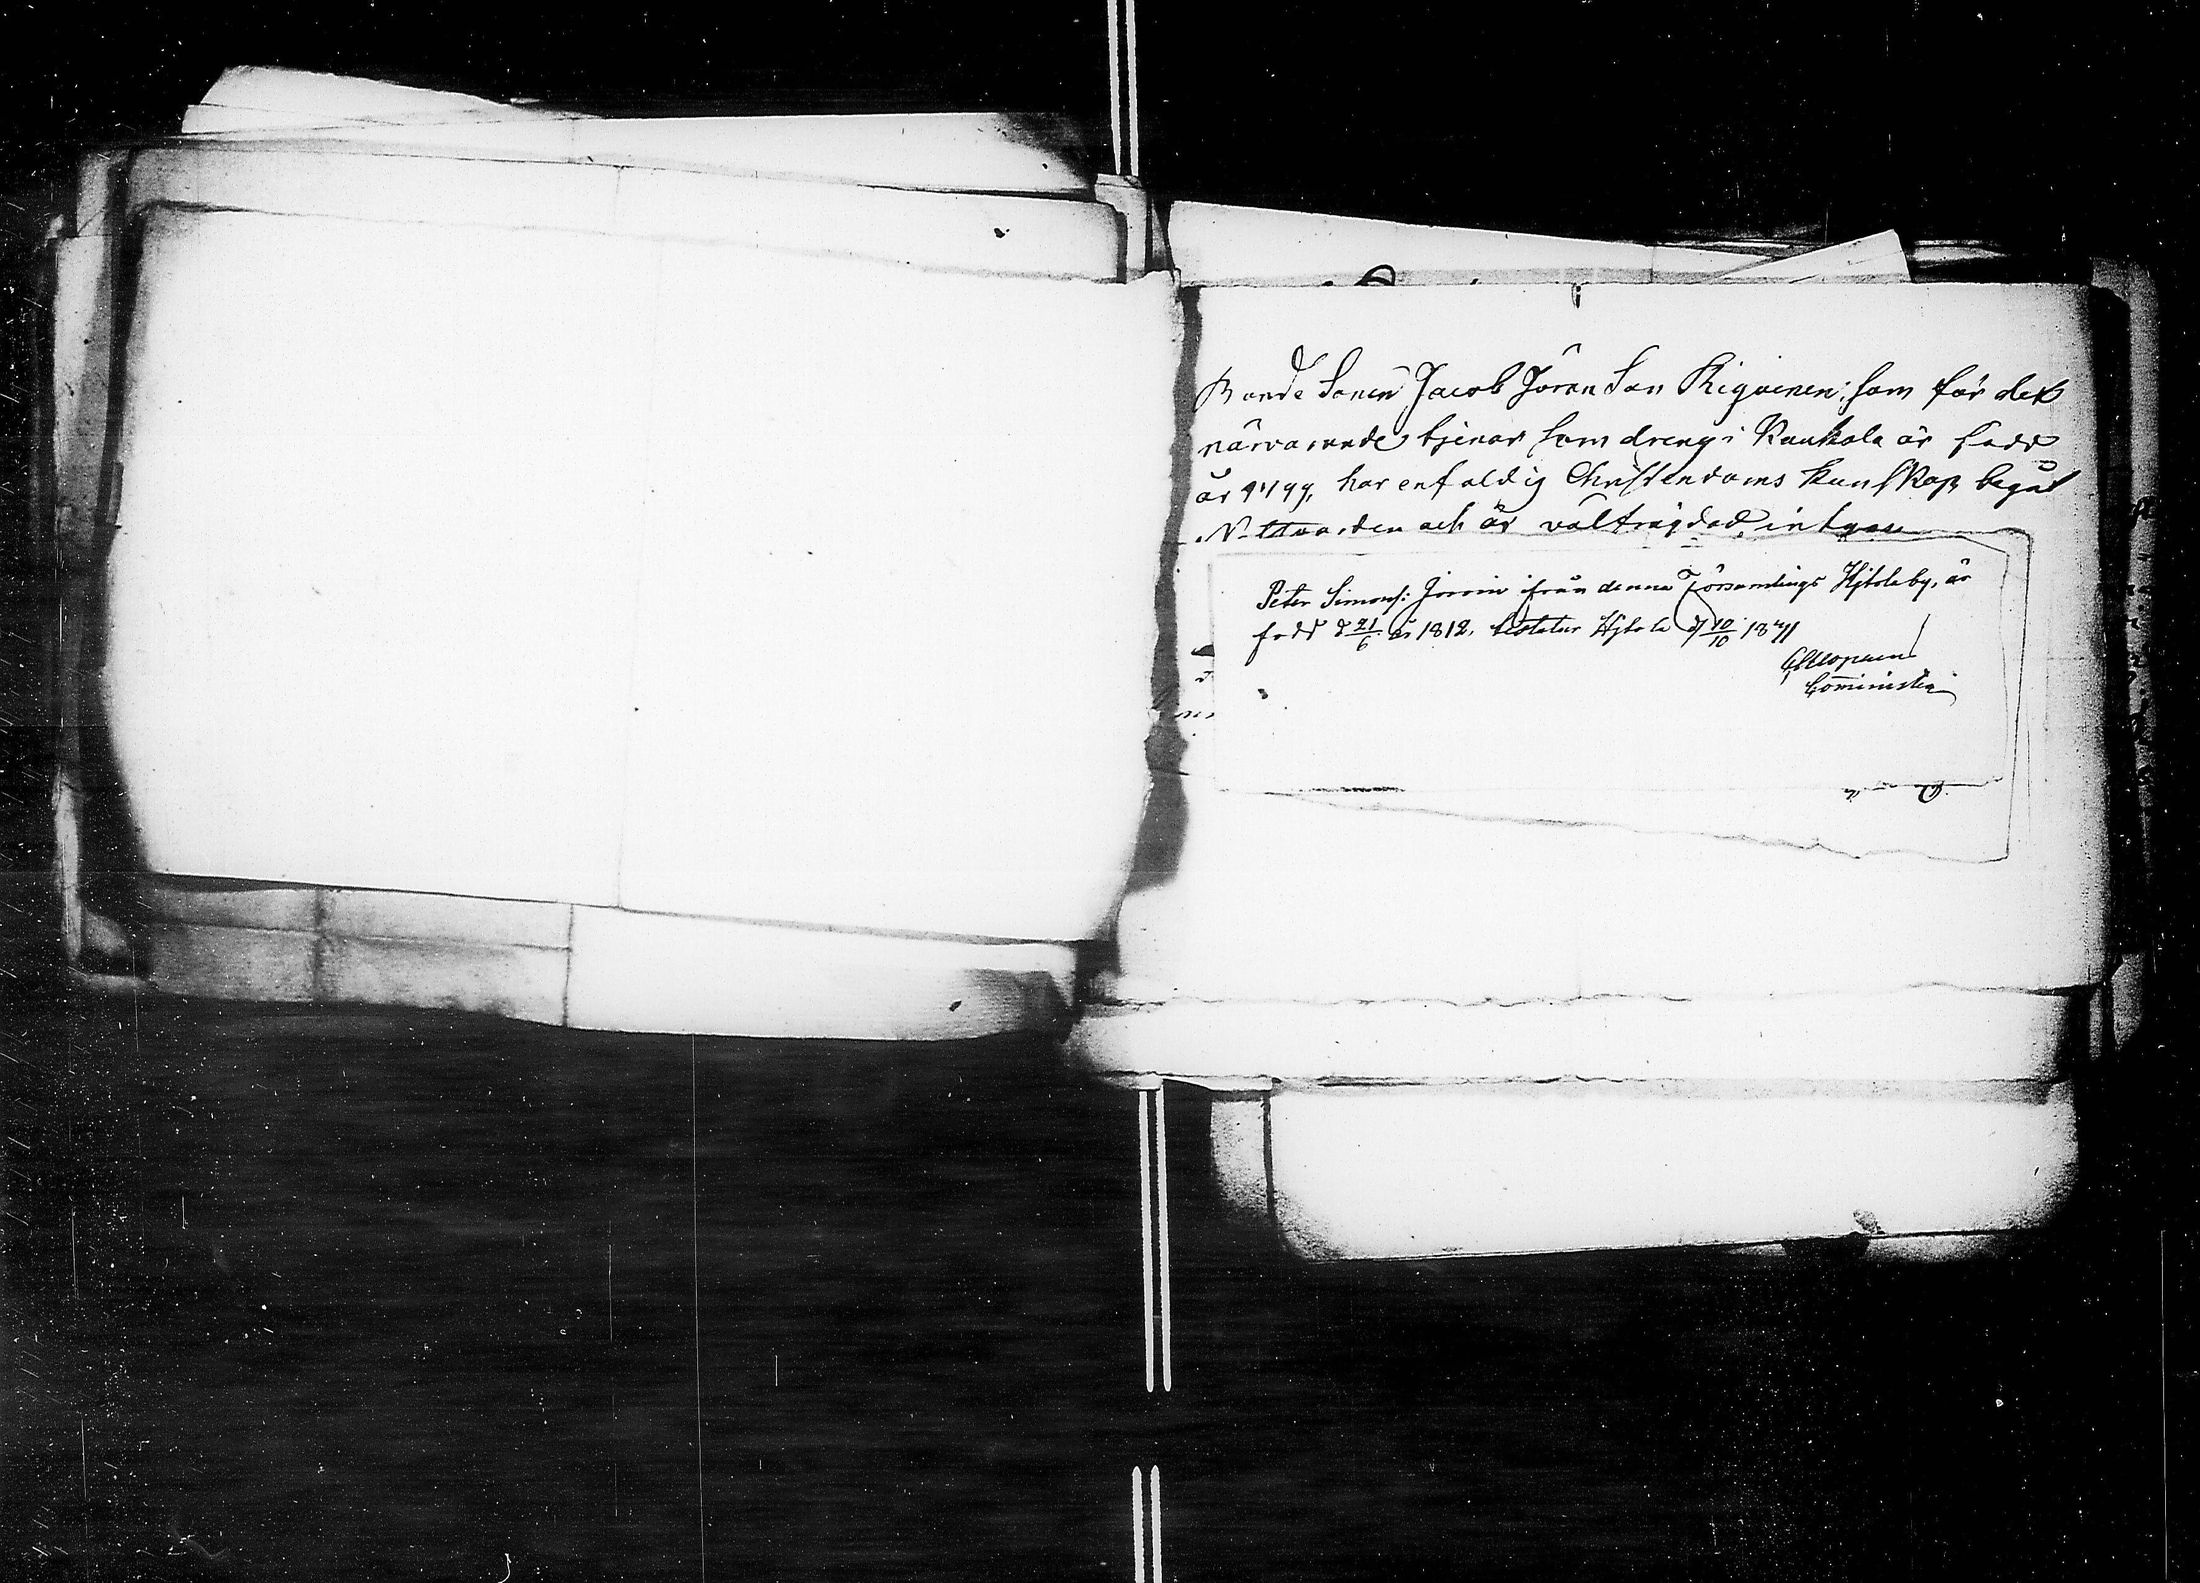 Bonde Sonen Jacob Jöran Son Kigoinen: som för det
närvarande tjenar som dreng i Kaukola är född
år 1799, har enfaldig Christendoms kunskap begåt
Nattvarden ach är välfräjdad, intygar
Peter Simonss: Joroin ifrån denna Församlings Hjtola by, är
född d 21/6 år 1812. testatur Hjtola d 10/10 1841
Cominister